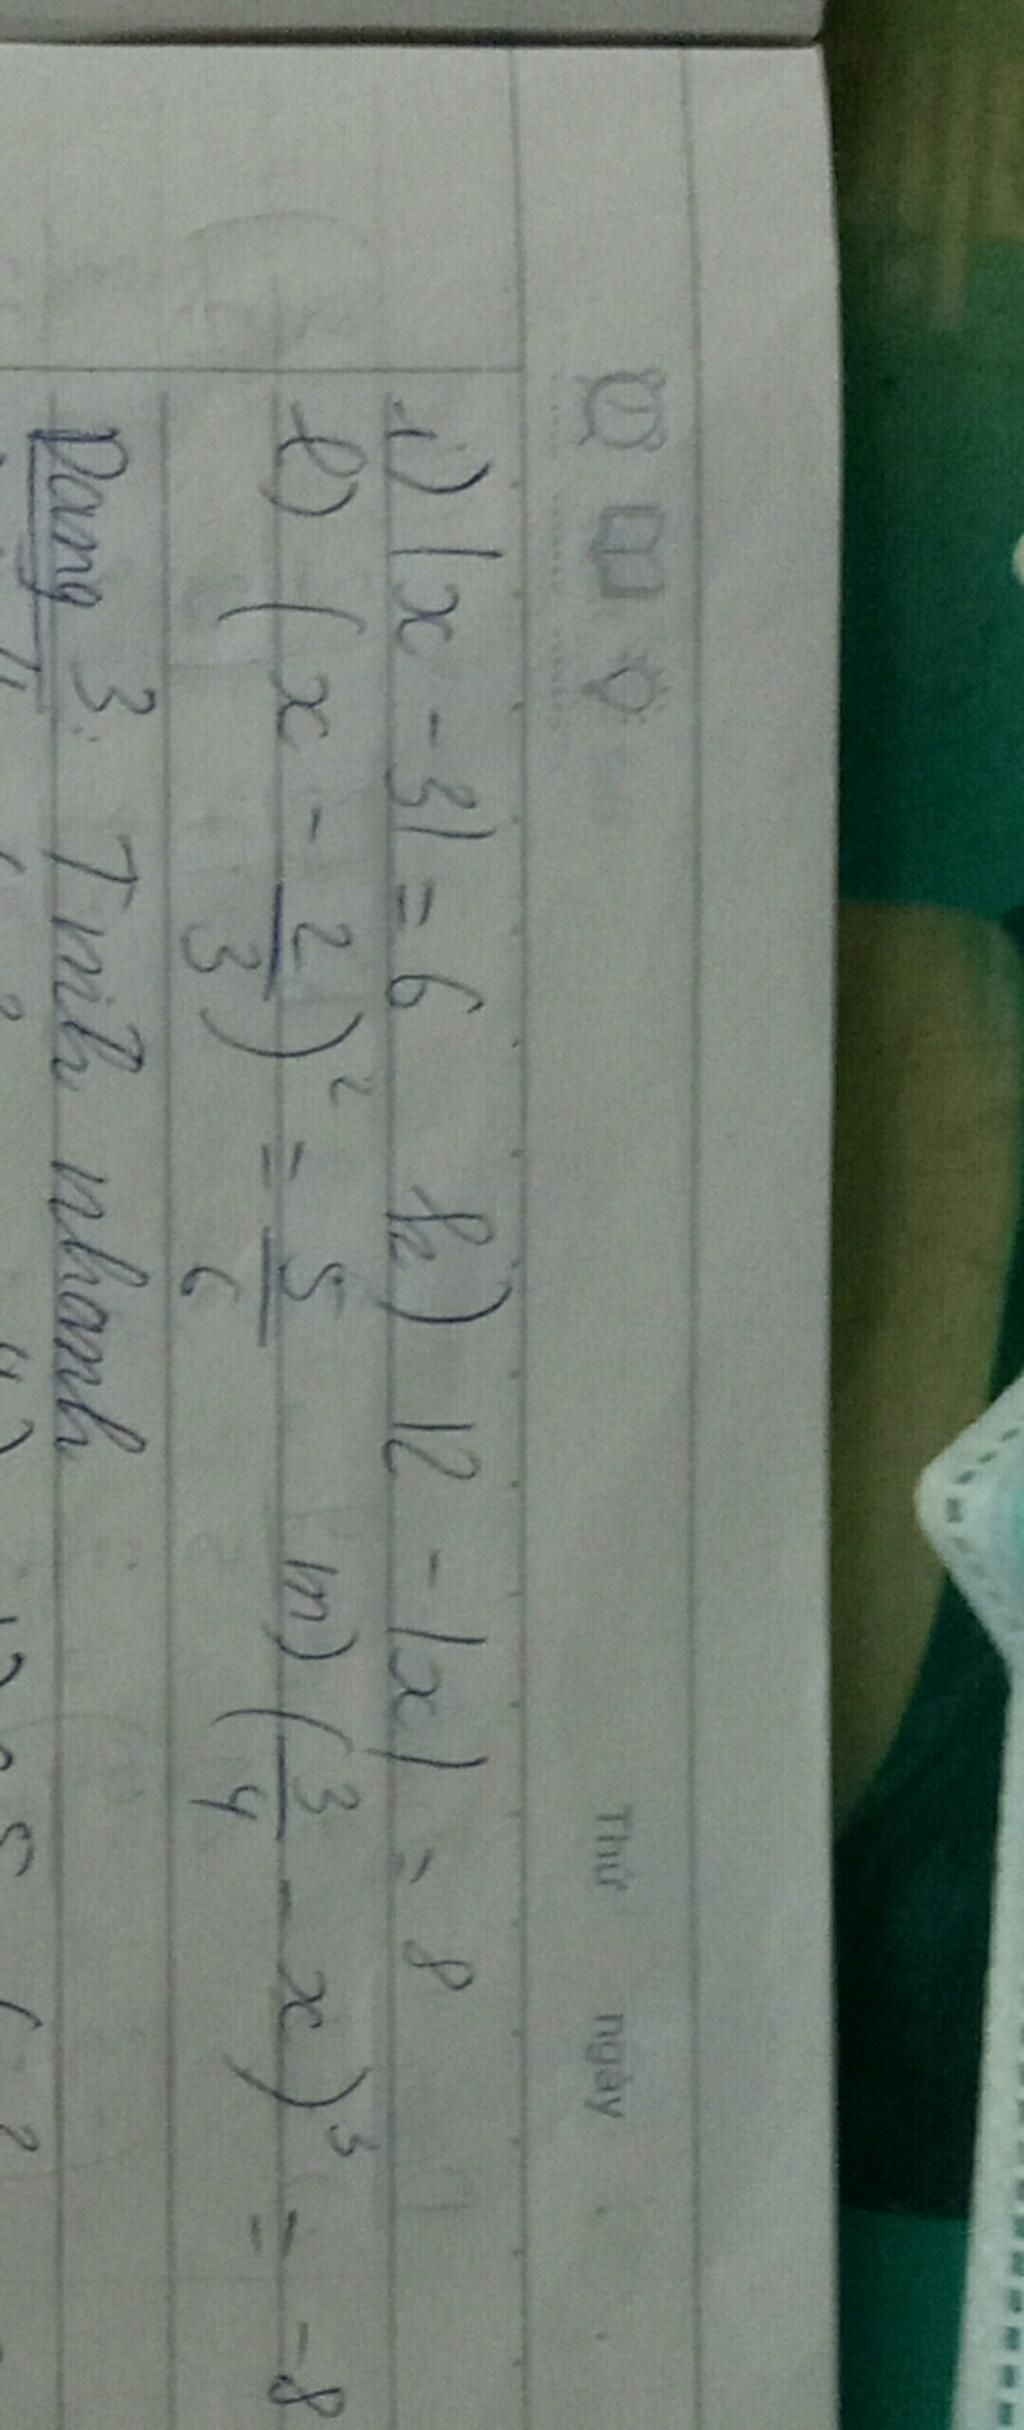 Thứ ngày
i) |x - 3| = 6 k) 12 - |x| = 8
l) (x - 2/3)² = 5/6 m) (3/4 - x)³ = -8
Dạng 3: Tính nhanh